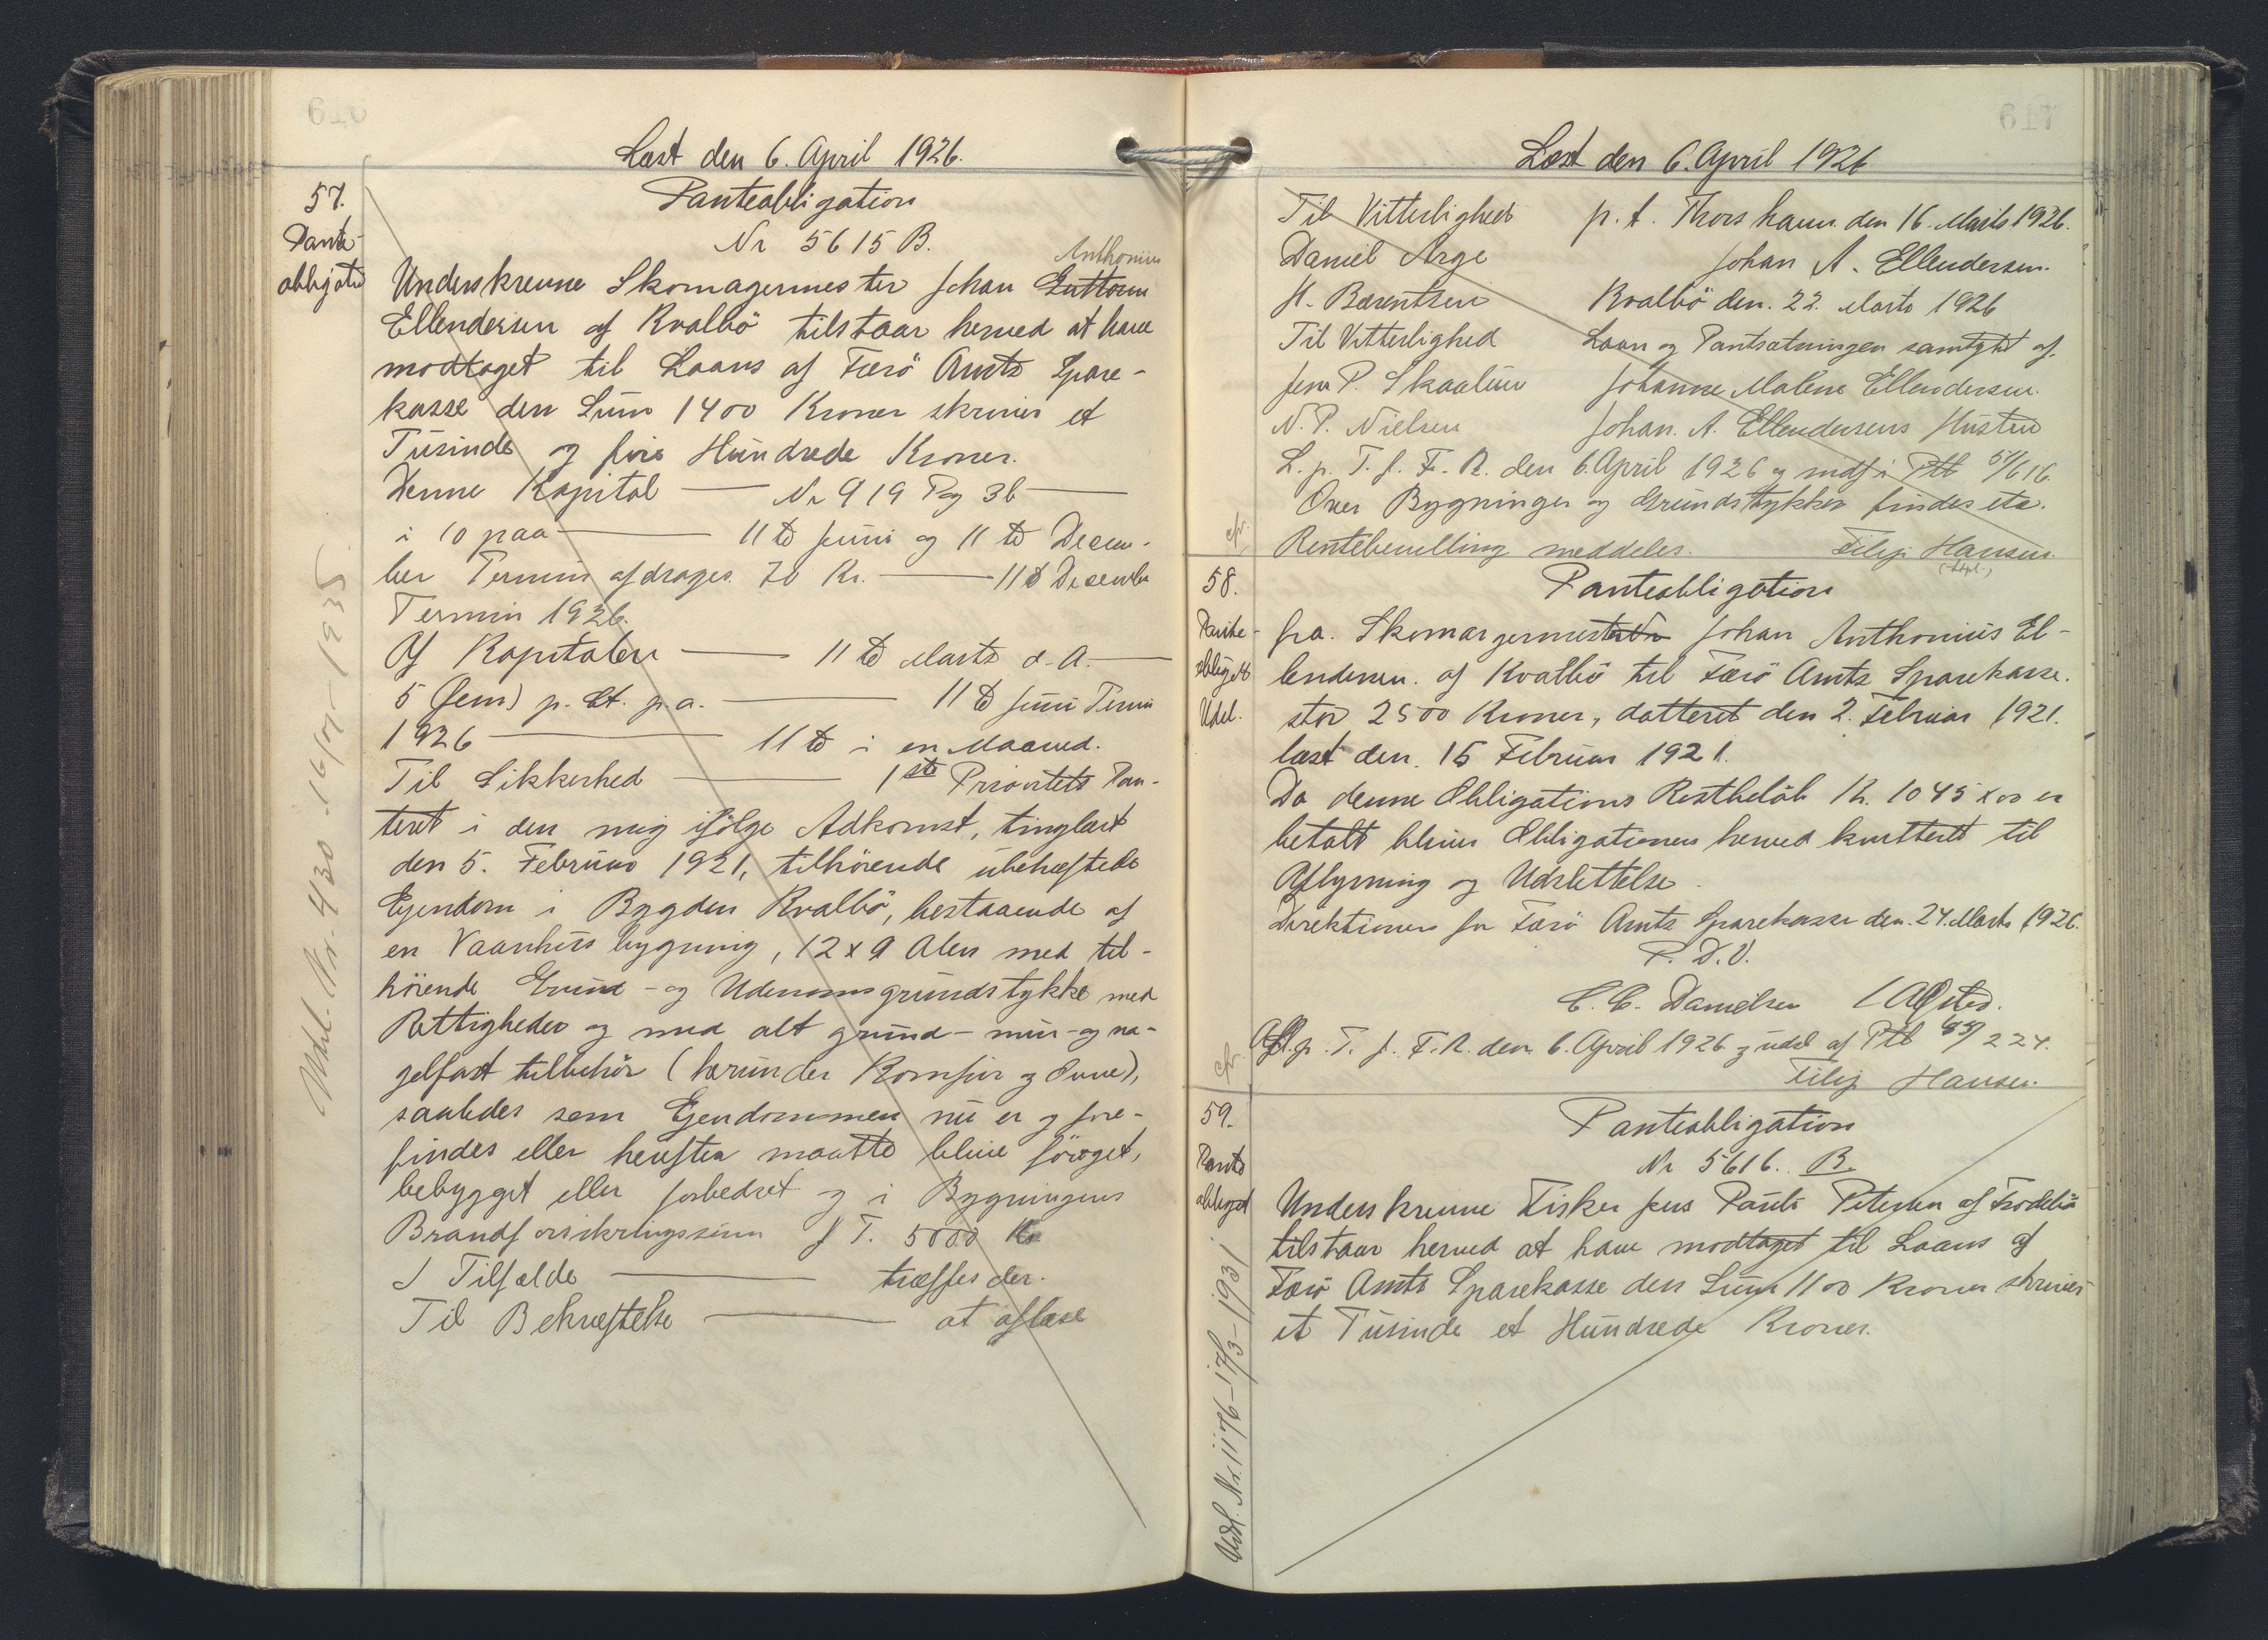 Læst den 6. April 1926.
57.
Pante-
obligatio
Panteobligation
Nr 5615 B.
Anthonius
Underskrevne Skomagermester Johan Guttorm
Ellendersen af Kvalbö tilstaar herved at have
modtaget til Laans af Færö Amts Spare-
kasse den Sum 1400 Kroner skriver et
Tusinde og fire Hundrede Kroner.
Denne Kapital — Nr 919 Pag 36 —
i 10 paa — 11te Juni og 11te Decem-
ber Termin afdrages 70 Kr. — 11te December
Termin 1926.
Af Kapitalen — 11te Marts d. A. —
5 (fem) p. Ct. p.a. — 11te Juni Termin
1926 — 11te i en Maaned.
Til Sikkerhed — 1ste Prioritets Pan-
teret i den mig ifölge Adkomst, tinglæst
den 5. Februar 1921, tilhörende ubehæftede
Ejendom i Bygden Kvalbö, bestaaende af
en Vaanhusbygning, 12 x 9 Alen med til-
hörende Grund- og Udenomsgrundstykke med
Rettigheder og med alt grund- mur- og na-
gelfast tilbehör (herunder Komfur og Ovne),
saaledes som Ejendommen nu er og fore-
findes eller herefter maatte blive foröget,
bebygget eller forbedret og i Bygningens
Brandforsikringssum f. T. 5000 Kr
I Tilfælde — træffes der.
Til Bekræftelse — at aflæse
Udsl. Nr. 430 - 16/7 - 1935
Læst den 6. April 1926
Til Vitterlighed p. t. Thorshavn den 16. Marts 1926.
Daniel Arge Johan A. Ellendersen.
H. Bærentsen Kvalbö den. 22. Marts 1926
Til Vitterlighed Laan og Pantsætningen samtykt af.
Jens P. Skaalum Johanne Malene Ellendersen.
N. P. Nielsen Johan. A. Ellendersens Hustru
L. p. T. f. F. R. den 6. April 1926 og indf i Ptb 51/616.
Over Bygninger og Grundstykker findes etc.
Rentebevilling meddeles. Filip Hansen
(kspl.)
cfr.
58.
Pante-
obligat
Udsl.
Panteobligation
fra. Skomargermester Johan Anthonius El-
lendersen. af Kvalbö til Færö Amts Sparekasse.
stor 2500 Kroner, datteret den 2. Februar 1921.
læst den. 15 Februar 1921.
Da denne Obligations Restbelöb Kr. 1045 x 00 er
betalt blives Obligationen herved kvitteret til
Aflysning og Udslettelse.
Direktionen for Færö Amts Sparekasse den. 24. Marts 1926.
P. D. V.
C. C. Danielsen / A Qsted.
Afl. p. T. f. F. R. den. 6. April 1926 og udsl af Ptb 48/224.
Filip Hansen.
cfr.
59.
Pante
obligat
Panteobligation
Nr 5616. B.
Underskrevne Fisker Jens Pauli Petersen af Frodebö
tilstaar herved at have modtaget til Laans af
Færö Amts Sparekasse den Sum 1100 Kroner skriver
et Tusinde et Hundrede Kroner.
Udsl. Nr. 1176 - 17/3 - 1931